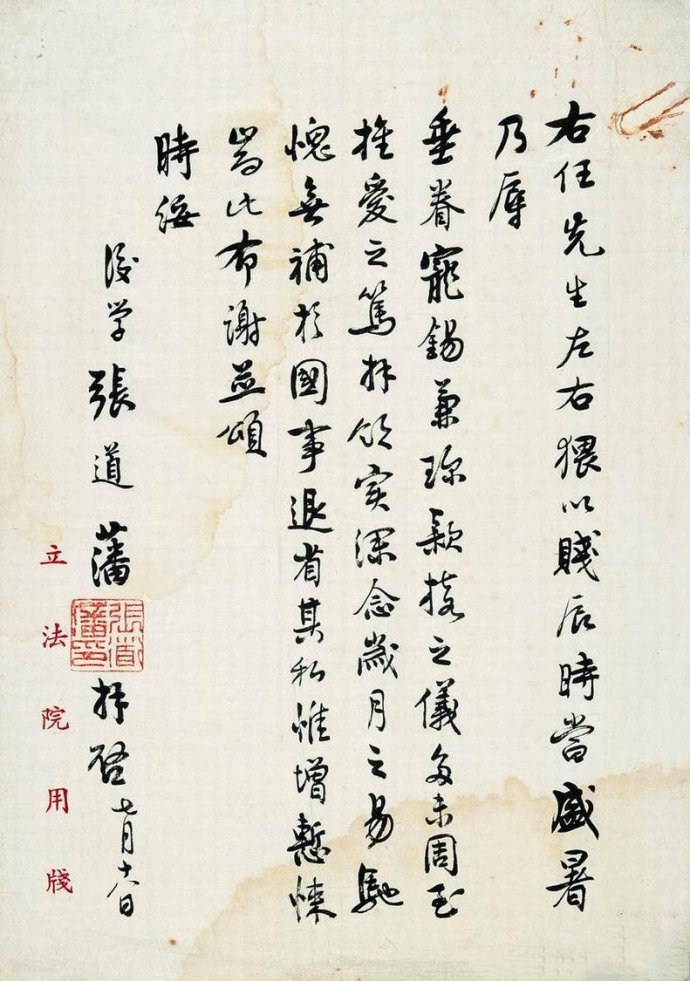 右任先生左右猥以賤辰時當盛暑
乃辱
垂眷寵錫兼珍款接之儀多未周至
推愛之篤拜領實深念歲月之易馳
愧無補於國事退省其私惟增慙悚
耑此布謝並頌
時綏
後學張道藩
張道藩印
拜啓七月十八日
立法院用牋